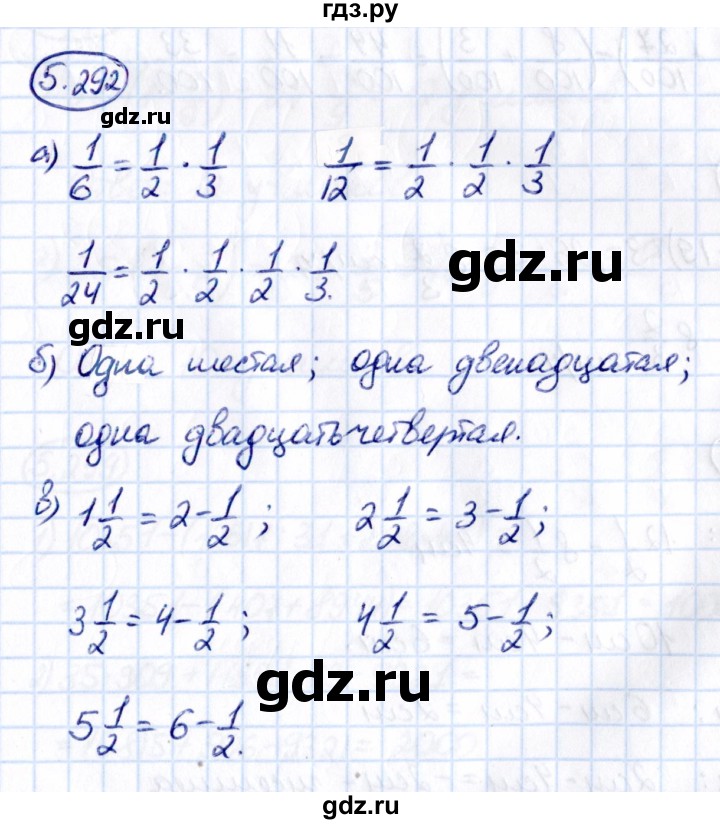 гдз.ру
5.292
gdz.ru
а) 1/6 = 1/2 · 1/3    1/12 = 1/2 · 1/2 · 1/3
1/24 = 1/2 · 1/2 · 1/2 · 1/3.
gdz.ru
gdz.ru
б) Одна шестая; одна двенадцатая;
одна двадцатьчетвертая.
в) 1 1/2 = 2 - 1/2;    2 1/2 = 3 - 1/2;
3 1/2 = 4 - 1/2;    4 1/2 = 5 - 1/2;
gdz.ru
5 1/2 = 6 - 1/2.
gdz.ru
gdz.ru